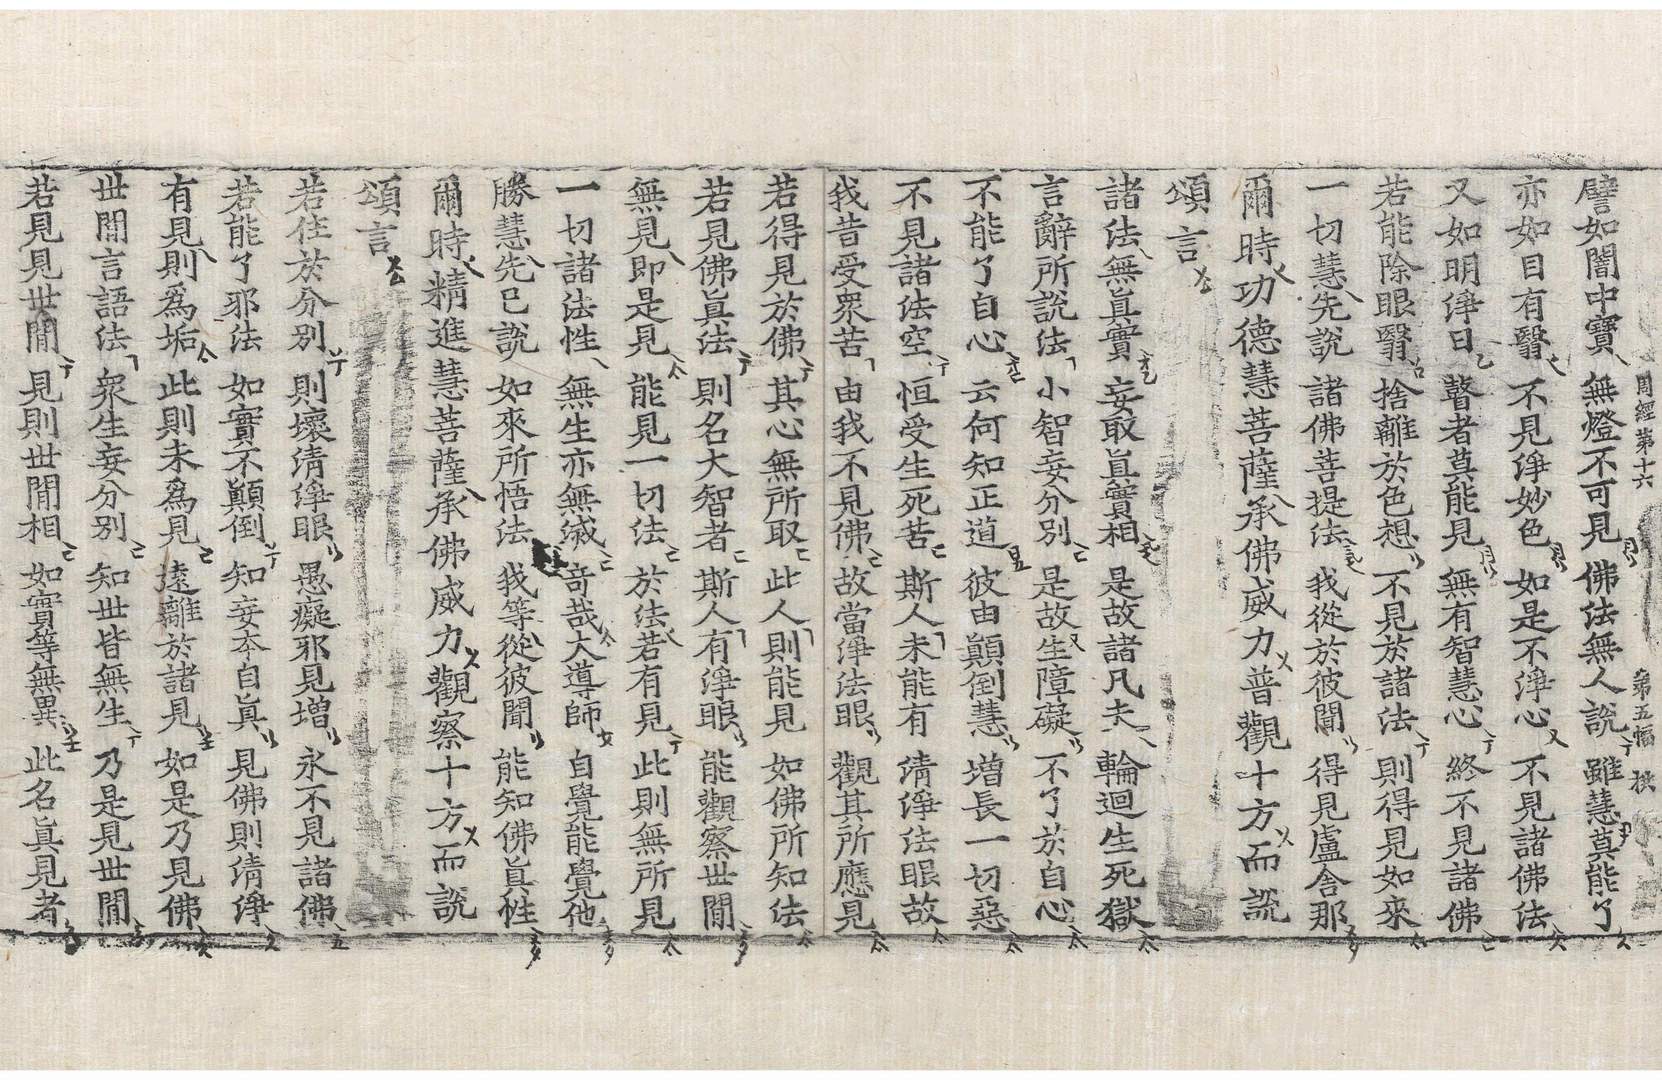 周經第十六 第五幅 拱
譬如闇中寶 無燈不可見 佛法無人說 雖慧莫能了
亦如目有翳 不見淨妙色 如是不淨心 不見諸佛法
又如明淨日 瞽者莫能見 無有智慧心 終不見諸佛
若能除眼翳 捨離於色想 不見於諸法 則得見如來
一切慧先說 諸佛菩提法 我從於彼聞 得見盧舍那
爾時功德慧菩薩承佛威力普觀十方而說
頌言
諸法無眞實 妄取眞實相 是故諸凡夫 輪迴生死獄
言辭所說法 小智妄分別 是故生障礙 不了於自心
不能了自心 云何知正道 彼由顚倒慧 增長一切惡
不見諸法空 恒受生死苦 斯人未能有 清淨法眼故
我昔受衆苦 由我不見佛 故當淨法眼 觀其所應見
若得見於佛 其心無所取 此人則能見 如佛所知法
若見佛眞法 則名大智者 斯人有淨眼 能觀察世閒
無見即是見 能見一切法 於法若有見 此則無所見
一切諸法性 無生亦無滅 奇哉大導師 自覺能覺他
勝慧先已說 如來所悟法 我等從彼聞 能知佛眞性
爾時精進慧菩薩承佛威力觀察十方而說
頌言
若住於分別 則壞清淨眼 愚癡邪見增 永不見諸佛
若能了邪法 如實不顚倒 知妄夲自眞 見佛則清淨
有見則爲垢 此則未爲見 遠離於諸見 如是乃見佛
世閒言語法 衆生妄分別 知世皆無生 乃是見世閒
若見見世閒 見則世閒相 如實等無異 此名眞見者